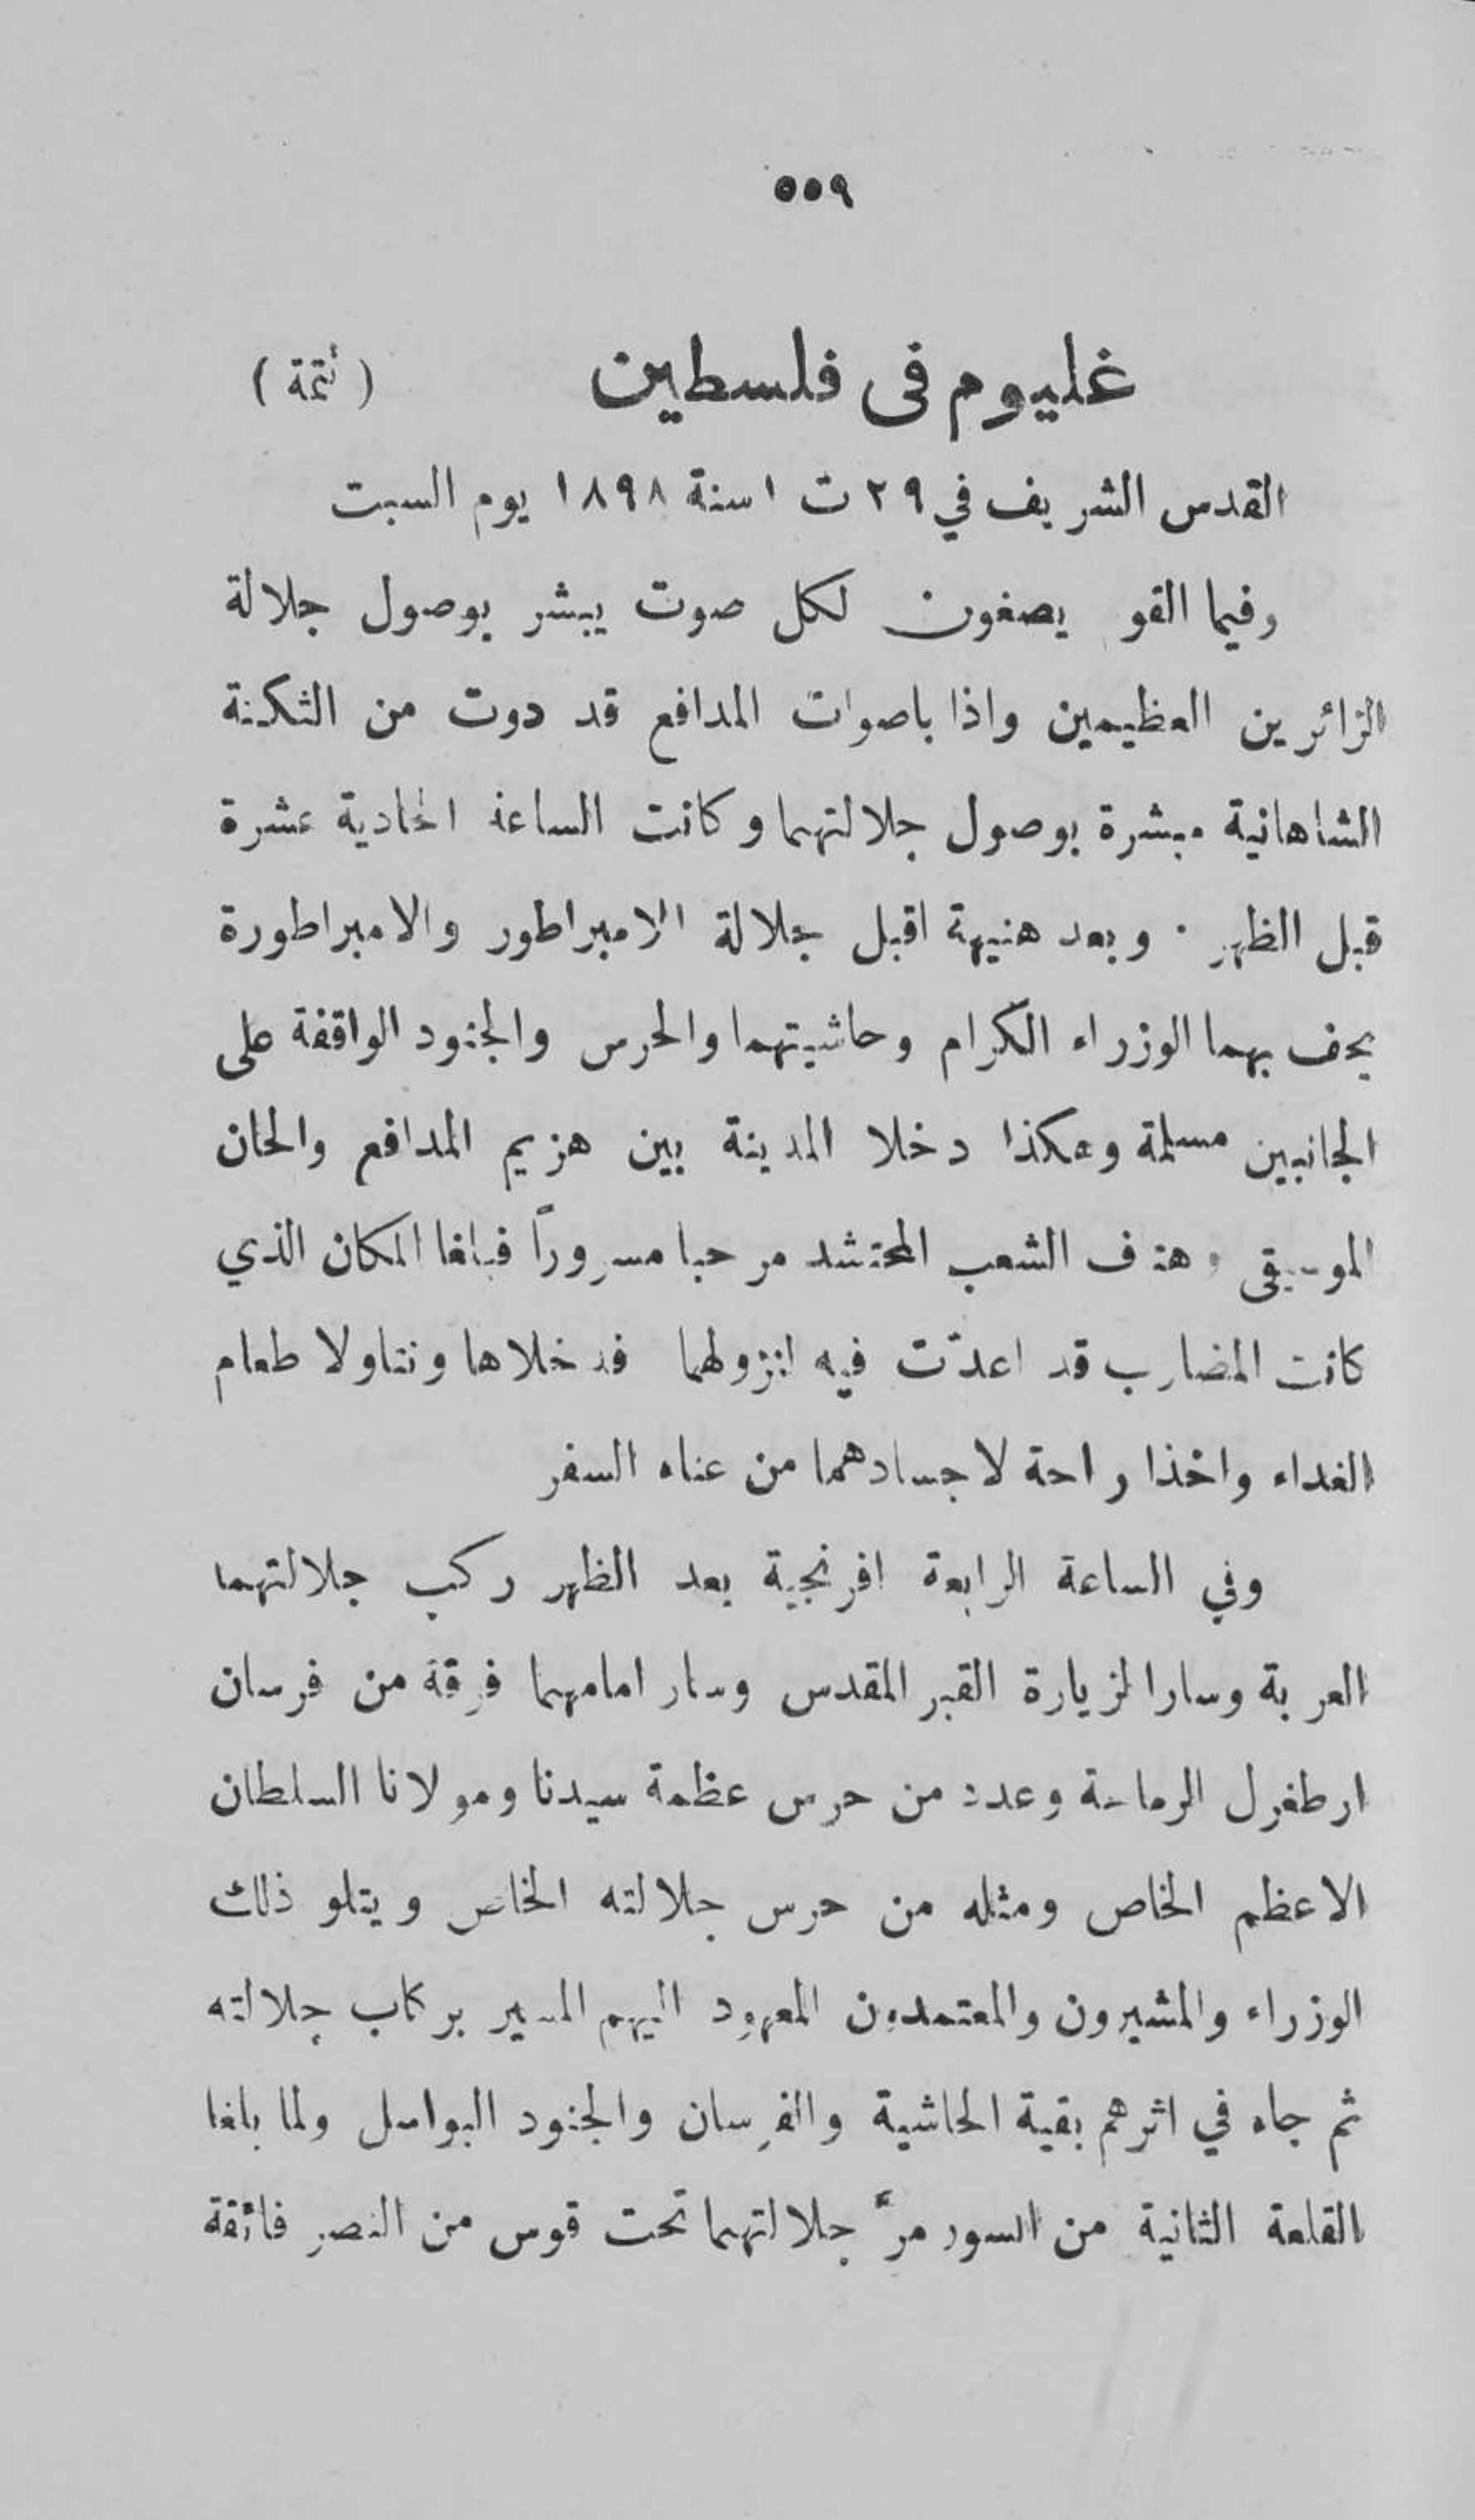 ٥٥٩
غليوم في فلسطين (تتمة)
القدس الشريف في ٢٩ ت ١ سنة ١٨٩٨ يوم السبت
وفيما القو يصغون لكل صوت يبشر بوصول جلالة
الزائرين العظيمين واذا باصوات المدافع قد دوت من الثكنة
الشاهانية مبشرة بوصول جلالتهما وكانت الساعة الحادية عشرة
قبل الظهر . وبعد هنيهة اقبل جلالة الامبراطور والامبراطورة
يحف بهما الوزراء الكرام وحاشيتهما والحرس والجنود الواقفة على
الجانبين مسلمة وهكذا دخلا المدينة بين هزيم المدافع والحان
الموسيقى وهتف الشعب المحتشد مرحبا مسروراً فبلغا المكان الذي
كانت المضارب قد اعدّت فيه لنزولهما فدخلاها وتناولا طعام
الغداء واخذا راحة لاجسادهما من عناء السفر
وفي الساعة الرابعة افرنجية بعد الظهر ركب جلالتهما
العربة وسارا لزيارة القبر المقدس وسار امامهما فرقة من فرسان
ارطغرل الرماحة وعدد من حرس عظمة سيدنا ومولانا السلطان
الاعظم الخاص ومثله من حرس جلالته الخاص ويتلو ذلك
الوزراء والمشيرون والمعتمدون المعهود اليهم المسير بركاب جلالته
ثم جاء في اثرهم بقية الحاشية والفرسان والجنود البواسل ولما بلغا
القلعة الثانية من السور مرَّ جلالتهما تحت قوس من النصر فائقة